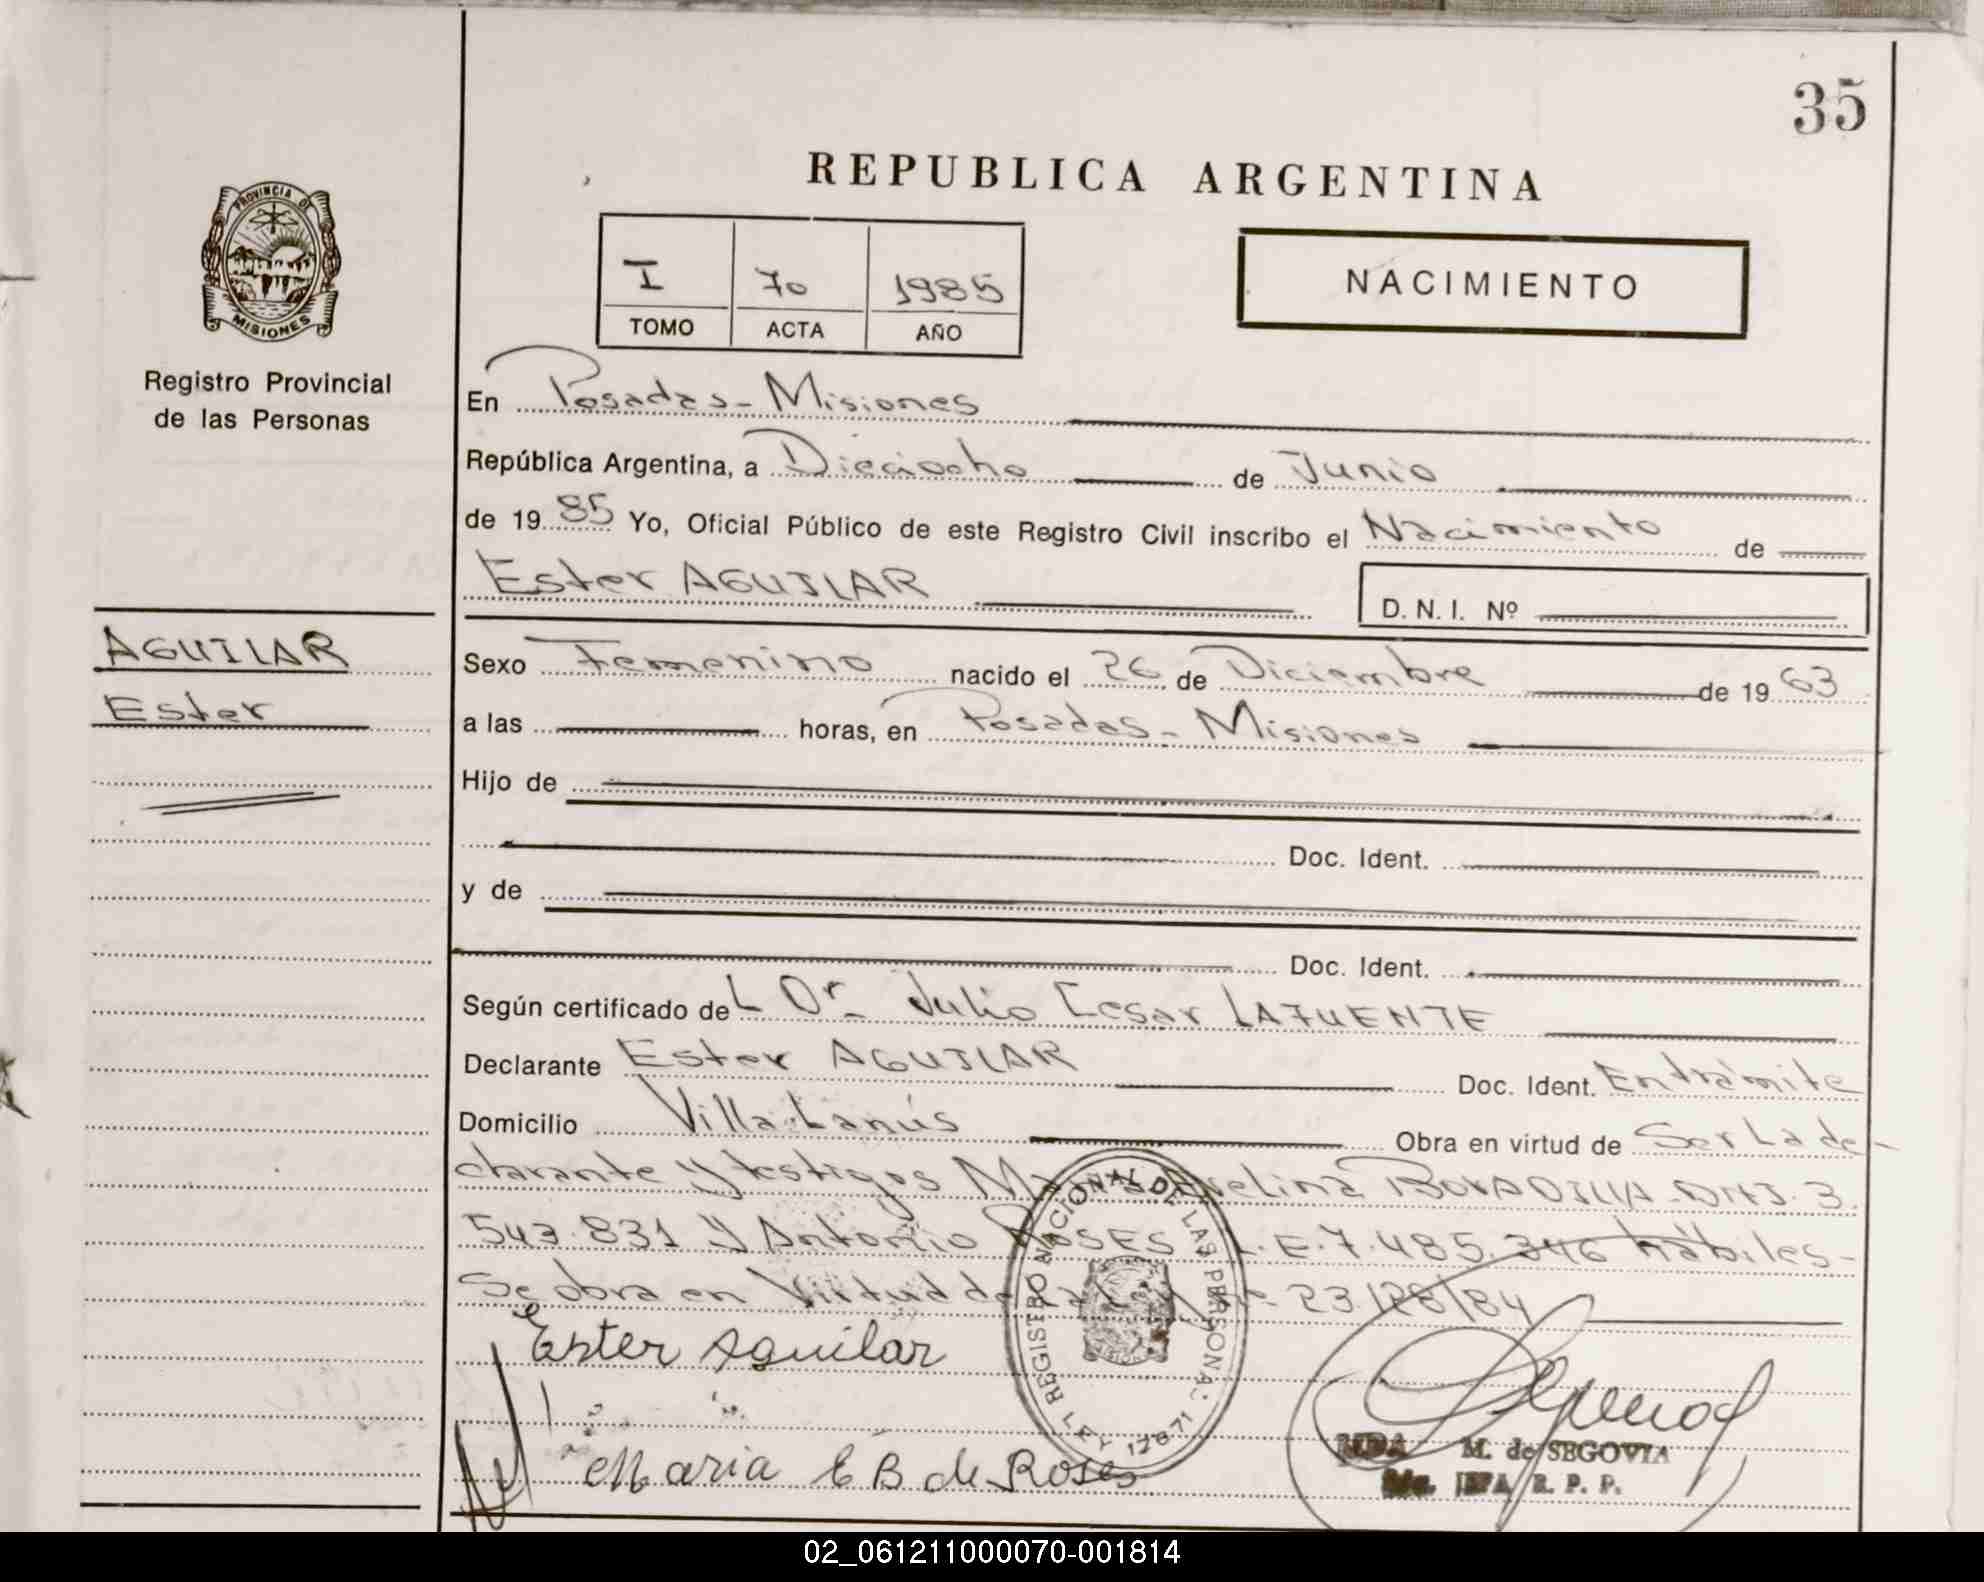 35
REPUBLICA ARGENTINA
PROVINCIA DE
MISIONES
I 70 1985
TOMO ACTA AÑO
NACIMIENTO
Registro Provincial
de las Personas
En Posadas - Misiones
República Argentina, a Dieciocho de Junio
de 1985 Yo, Oficial Público de este Registro Civil inscribo el Nacimiento de
Ester AGUILAR
D. N. I. Nº
AGUILAR
Ester
Sexo Femenino nacido el 26 de Diciembre de 1963
a las horas, en Posadas - Misiones
Hijo de
Doc. Ident.
y de
Doc. Ident.
Según certificado deL Dr. Julio Cesar LAFUENTE
Declarante Ester AGUILAR Doc. Ident. En trámite
Domicilio Villa Lanús Obra en virtud de Ser La de-
clarante y testigos Evelina BOVADILLA - DNI. 3.
543.831 y Antonio ROSES L.E. 7.485.346 hábiles-
Se obra en Virtud de 23.128/84
Ester Aguilar
REGISTRO NACIONAL DE LAS PERSONAS
LEY 12671
Maria E B de Roses
M. de SEGOVIA
R. P. P.
02_061211000070-001814